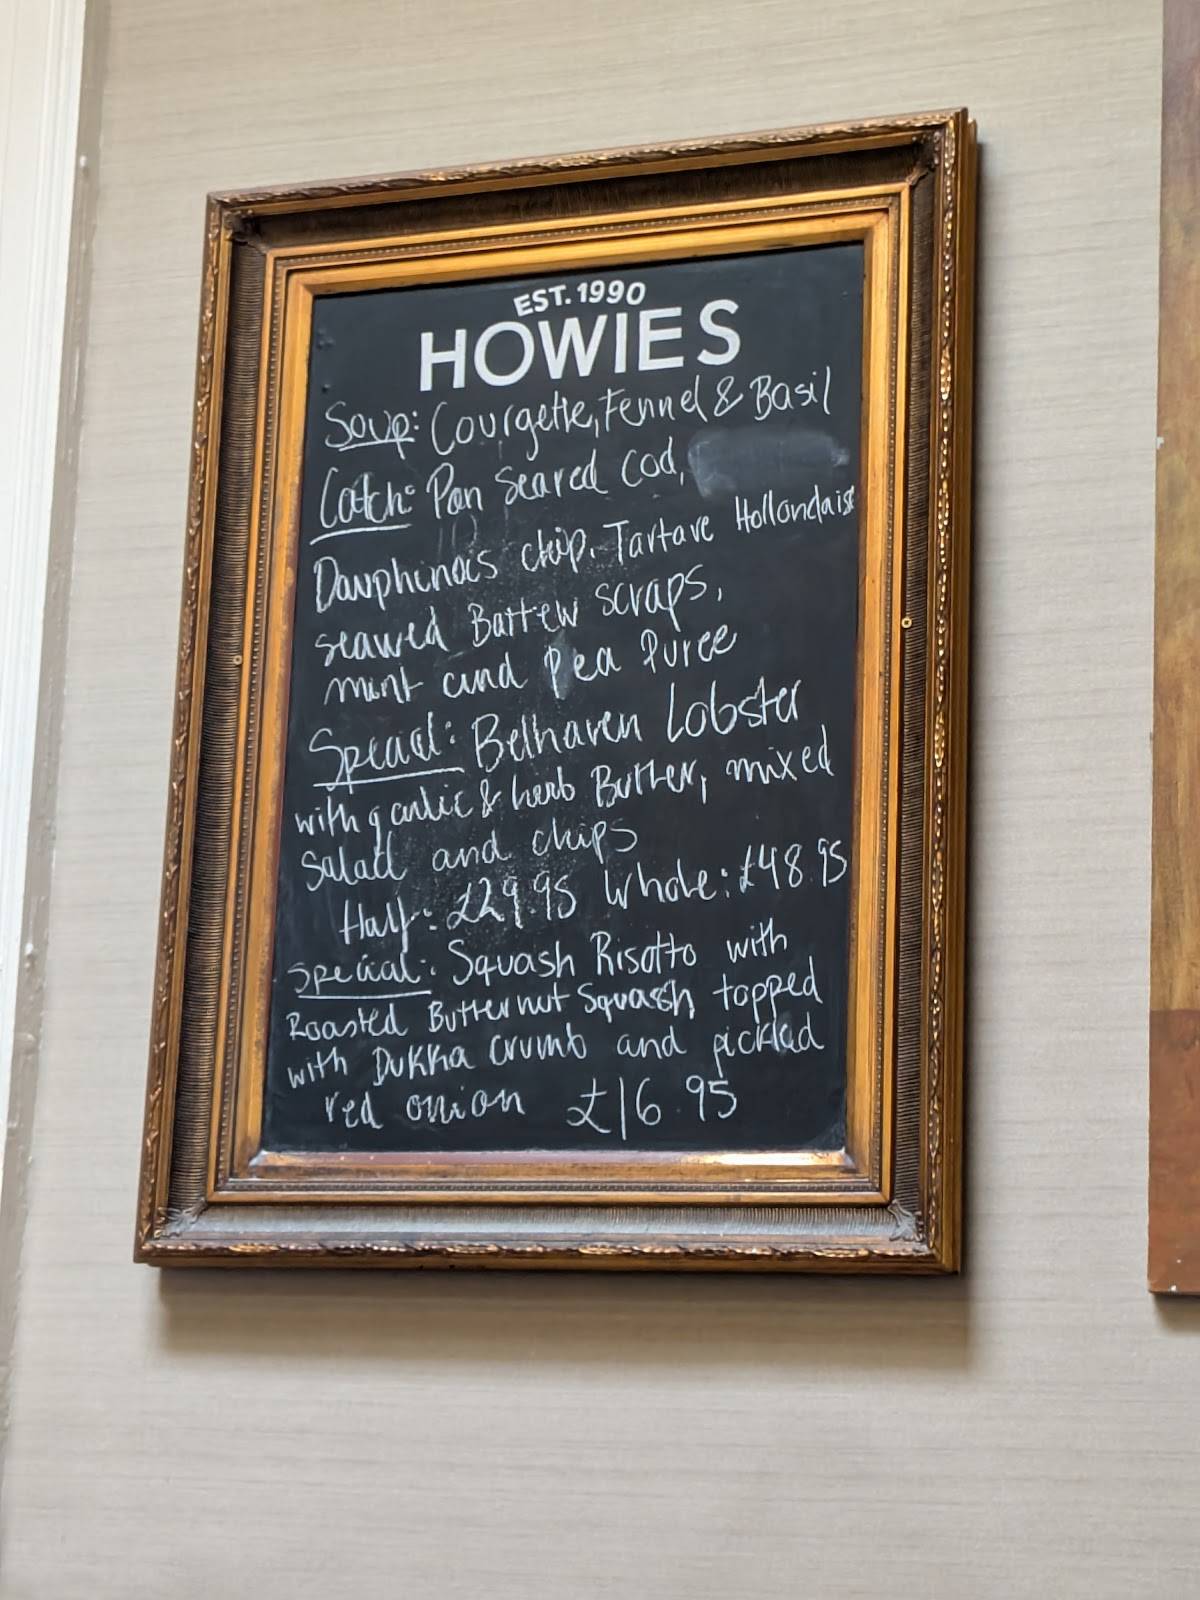 EST. 1990
HOWIES
Soup: Courgette, Fennel & Basil
Catch: Pan Seared Cod,
Dauphinois chip. Tartare Hollondaise
seawed Batter scraps,
mint and Pea Puree
Special: Belhaven Lobster
with garlic & herb Butter, mixed
Salad and chips
Half: £29.95 Whole: £48.95
Special: Squash Risotto with
Roasted Butternut Squash topped
with Dukka crumb and pickled
red onion £16.95